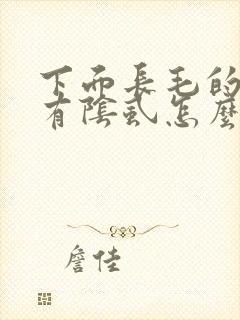 下面長毛的
有陰虱怎麼
詹佳